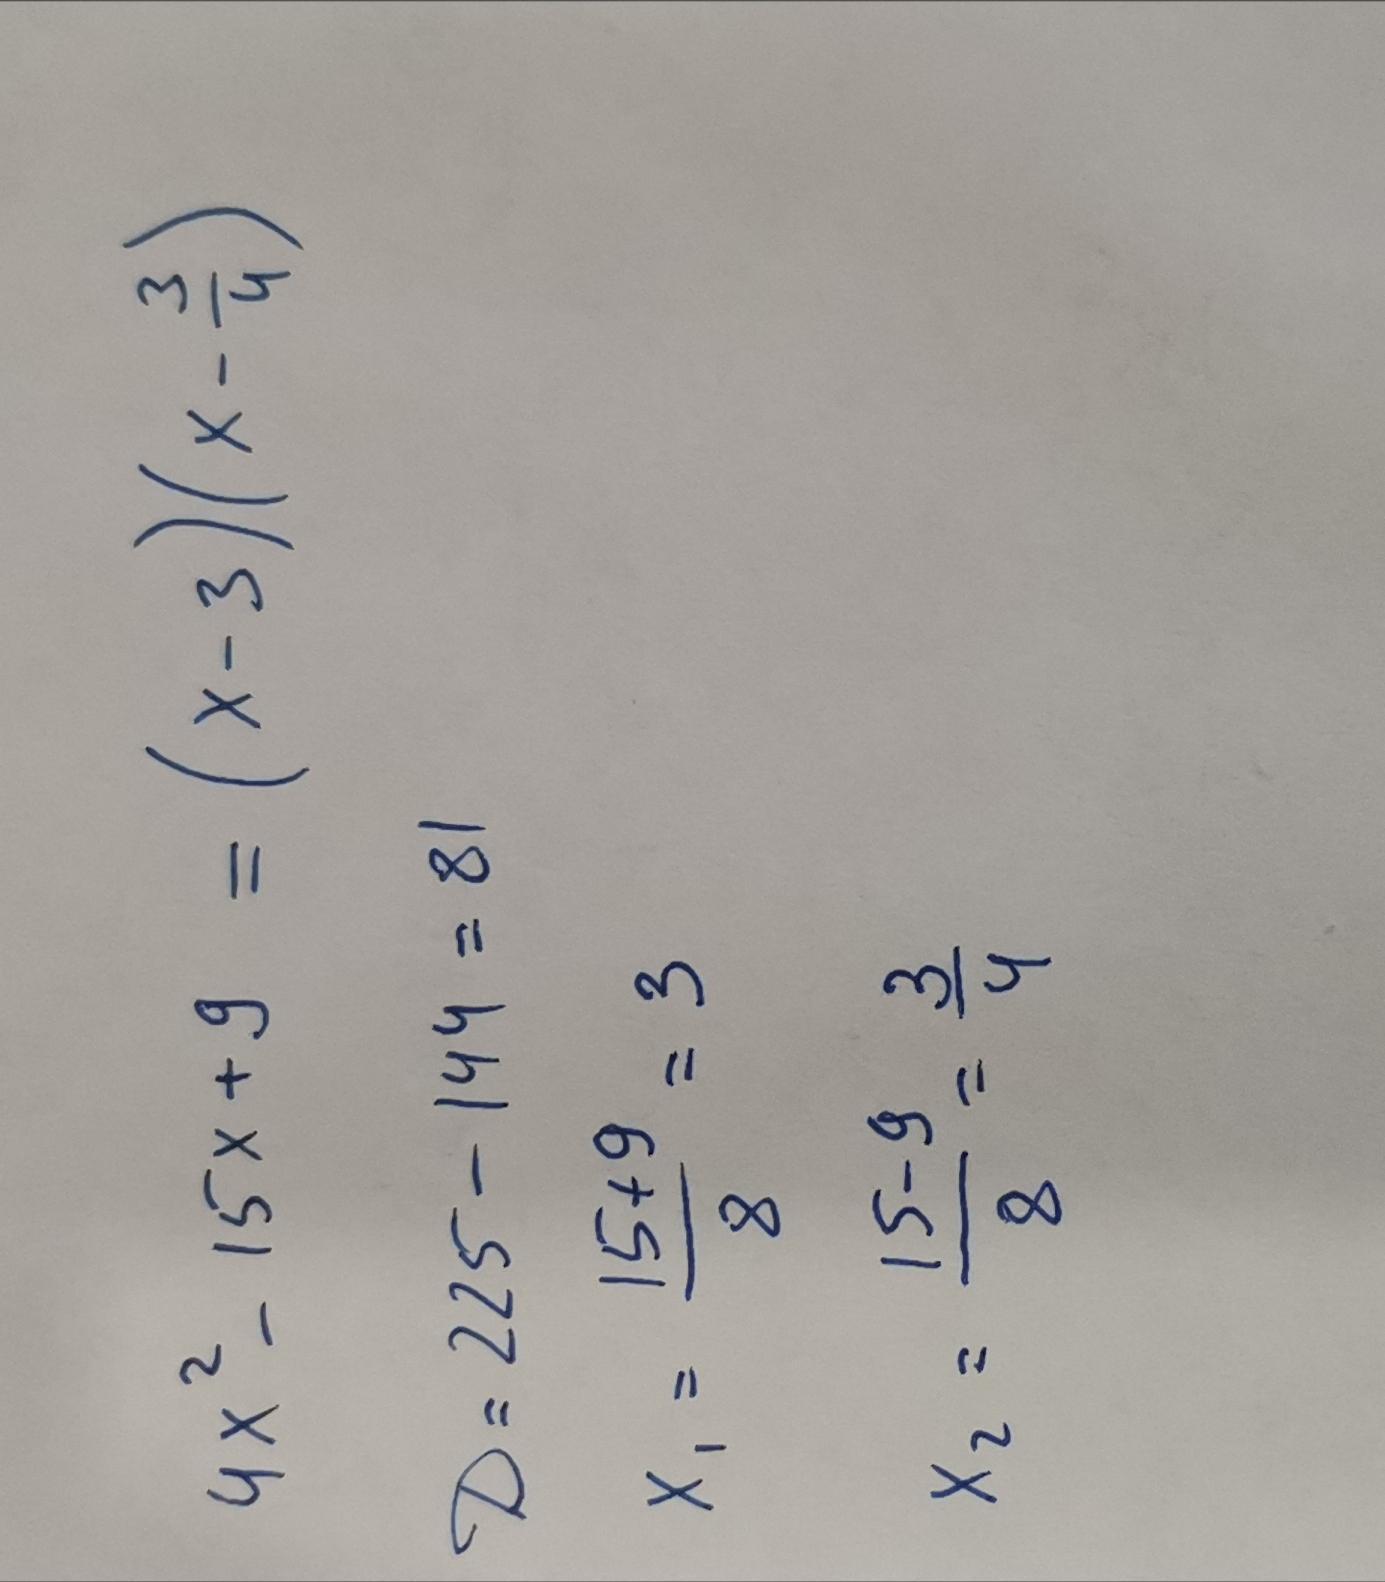 4x² - 15x + 9 = (x - 3)(x - 3/4)
D = 225 - 144 = 81
x₁ = (15+9)/8 = 3
x₂ = (15-9)/8 = 3/4